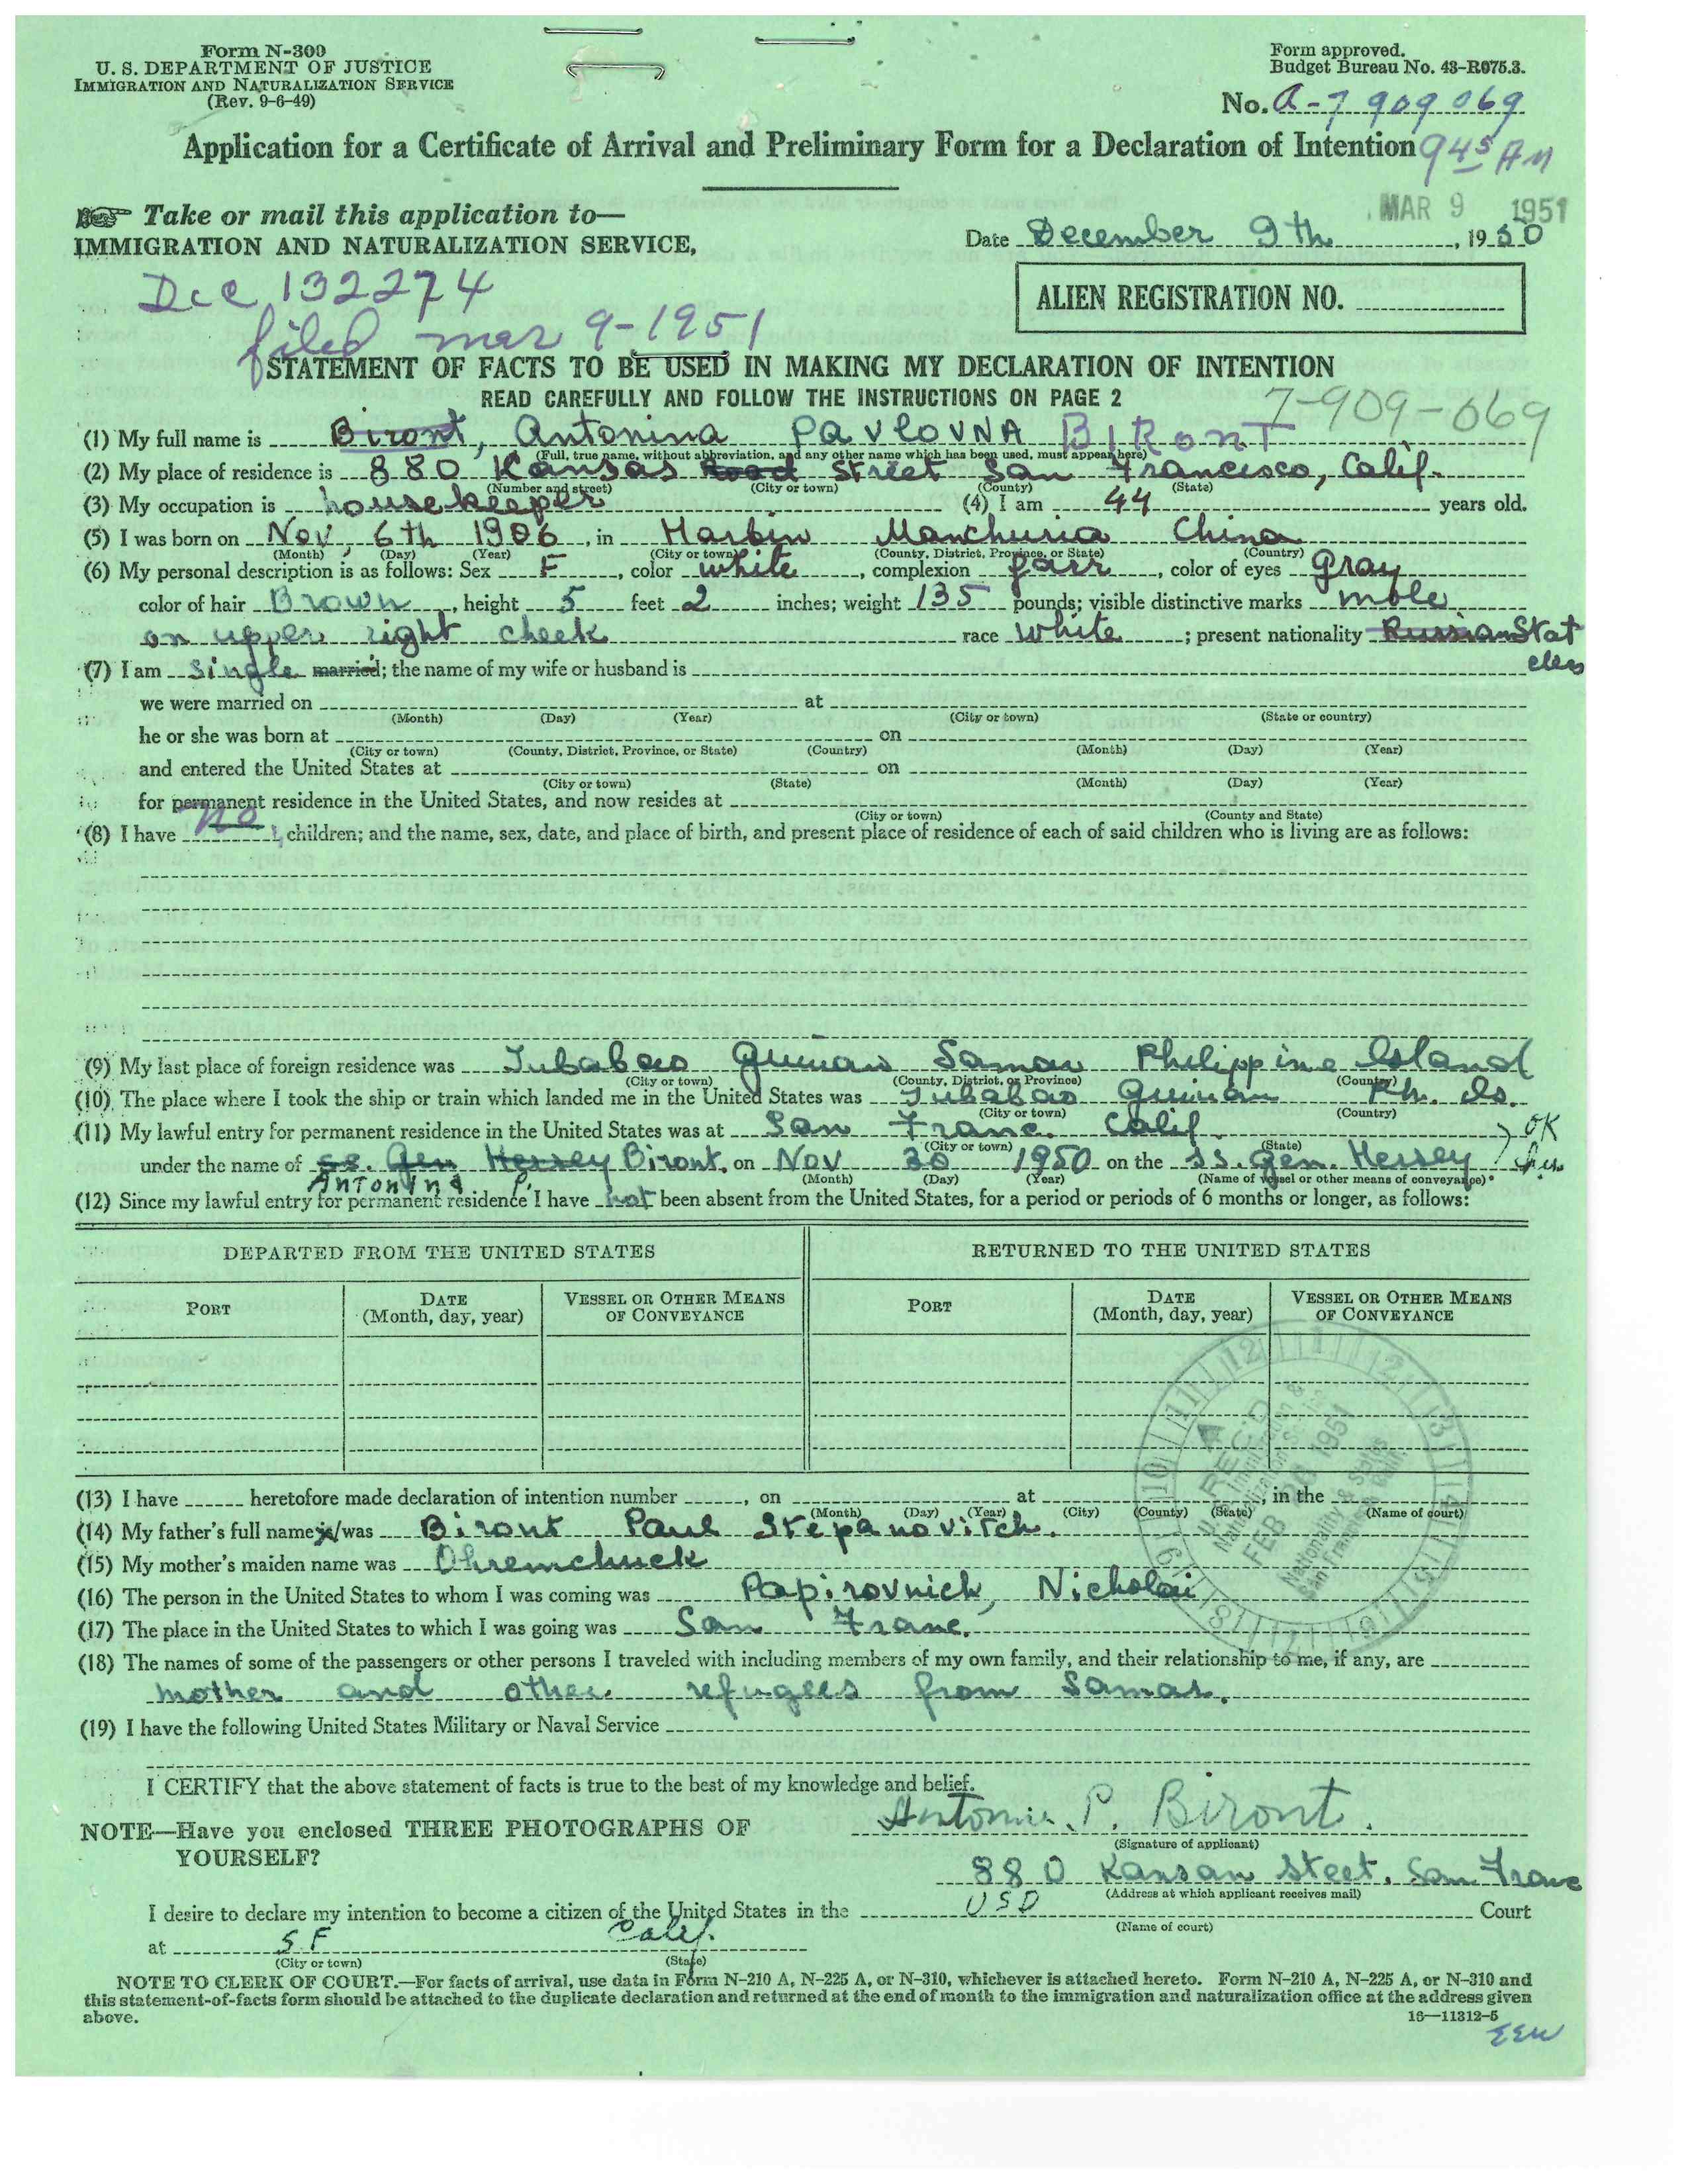 Form N-300
U. S. DEPARTMENT OF JUSTICE
IMMIGRATION AND NATURALIZATION SERVICE
(Rev. 9-6-49)
Form approved.
Budget Bureau No. 43-R075.3.
No. A-7 909 069
Application for a Certificate of Arrival and Preliminary Form for a Declaration of Intention 945 AM
Take or mail this application to—
IMMIGRATION AND NATURALIZATION SERVICE,
MAR 9 1951
Date December 9th, 1950
Dec 132274
filed mar 9-1951
ALIEN REGISTRATION NO.
STATEMENT OF FACTS TO BE USED IN MAKING MY DECLARATION OF INTENTION
READ CAREFULLY AND FOLLOW THE INSTRUCTIONS ON PAGE 2
7-909-069
(1) My full name is Biront, Antonina PAVLOVNA BIRONT
(Full, true name, without abbreviation, and any other name which has been used, must appear here)
(2) My place of residence is 880 Kansas Road Street San Francisco, Calif.
(Number and street) (City or town) (County) (State)
(3) My occupation is housekeeper (4) I am 44 years old.
(5) I was born on Nov, 6th 1906, in Harbin Manchuria China
(Month) (Day) (Year) (City or town) (County, District, Province, or State) (Country)
(6) My personal description is as follows: Sex F, color white, complexion fair, color of eyes Gray
color of hair Brown, height 5 feet 2 inches; weight 135 pounds; visible distinctive marks mole
on upper right cheek race White; present nationality Russian Stat
eless
(7) I am single married; the name of my wife or husband is
we were married on at
(Month) (Day) (Year) (City or town) (State or country)
he or she was born at on
(City or town) (County, District, Province, or State) (Country) (Month) (Day) (Year)
and entered the United States at on
(City or town) (State) (Month) (Day) (Year)
for permanent residence in the United States, and now resides at
(City or town) (County and State)
(8) I have no children; and the name, sex, date, and place of birth, and present place of residence of each of said children who is living are as follows:
(9) My last place of foreign residence was Tubabao Guiuan Samar Philippine Island
(City or town) (County, District, or Province) (Country)
(10) The place where I took the ship or train which landed me in the United States was Tubabao Guiuan Ph. Is.
(City or town) (Country)
(11) My lawful entry for permanent residence in the United States was at San Franc. Calif.
(City or town) (State)
OK
under the name of ss. Gen Hersey Biront, on Nov 30 1950 on the SS. Gen. Hersey
ANTONINA P. (Month) (Day) (Year) (Name of vessel or other means of conveyance)
(12) Since my lawful entry for permanent residence I have not been absent from the United States, for a period or periods of 6 months or longer, as follows:
DEPARTED FROM THE UNITED STATES RETURNED TO THE UNITED STATES
PORT DATE (Month, day, year) VESSEL OR OTHER MEANS OF CONVEYANCE PORT DATE (Month, day, year) VESSEL OR OTHER MEANS OF CONVEYANCE
REC'D
U.S. Immigration & Naturalization Service
FEB 1951
Nationality & Status
San Francisco, Calif.
(13) I have heretofore made declaration of intention number, on at, in the
(Month) (Day) (Year) (City) (County) (State) (Name of court)
(14) My father's full name is/was Biront Paul Stepanovitch.
(15) My mother's maiden name was Ohremchuck
(16) The person in the United States to whom I was coming was Papirovnick, Nicholai
(17) The place in the United States to which I was going was San Franc.
(18) The names of some of the passengers or other persons I traveled with including members of my own family, and their relationship to me, if any, are
mother and other refugees from Samar.
(19) I have the following United States Military or Naval Service
I CERTIFY that the above statement of facts is true to the best of my knowledge and belief.
Antonina P. Biront.
(Signature of applicant)
NOTE—Have you enclosed THREE PHOTOGRAPHS OF
YOURSELF?
880 Kansan Steet, San Franc
(Address at which applicant receives mail)
I desire to declare my intention to become a citizen of the United States in the USD Court
(Name of court)
at SF Calif.
(City or town) (State)
NOTE TO CLERK OF COURT.—For facts of arrival, use data in Form N-210 A, N-225 A, or N-310, whichever is attached hereto. Form N-210 A, N-225 A, or N-310 and
this statement-of-facts form should be attached to the duplicate declaration and returned at the end of month to the immigration and naturalization office at the address given
above.
16—11312-5
EEW